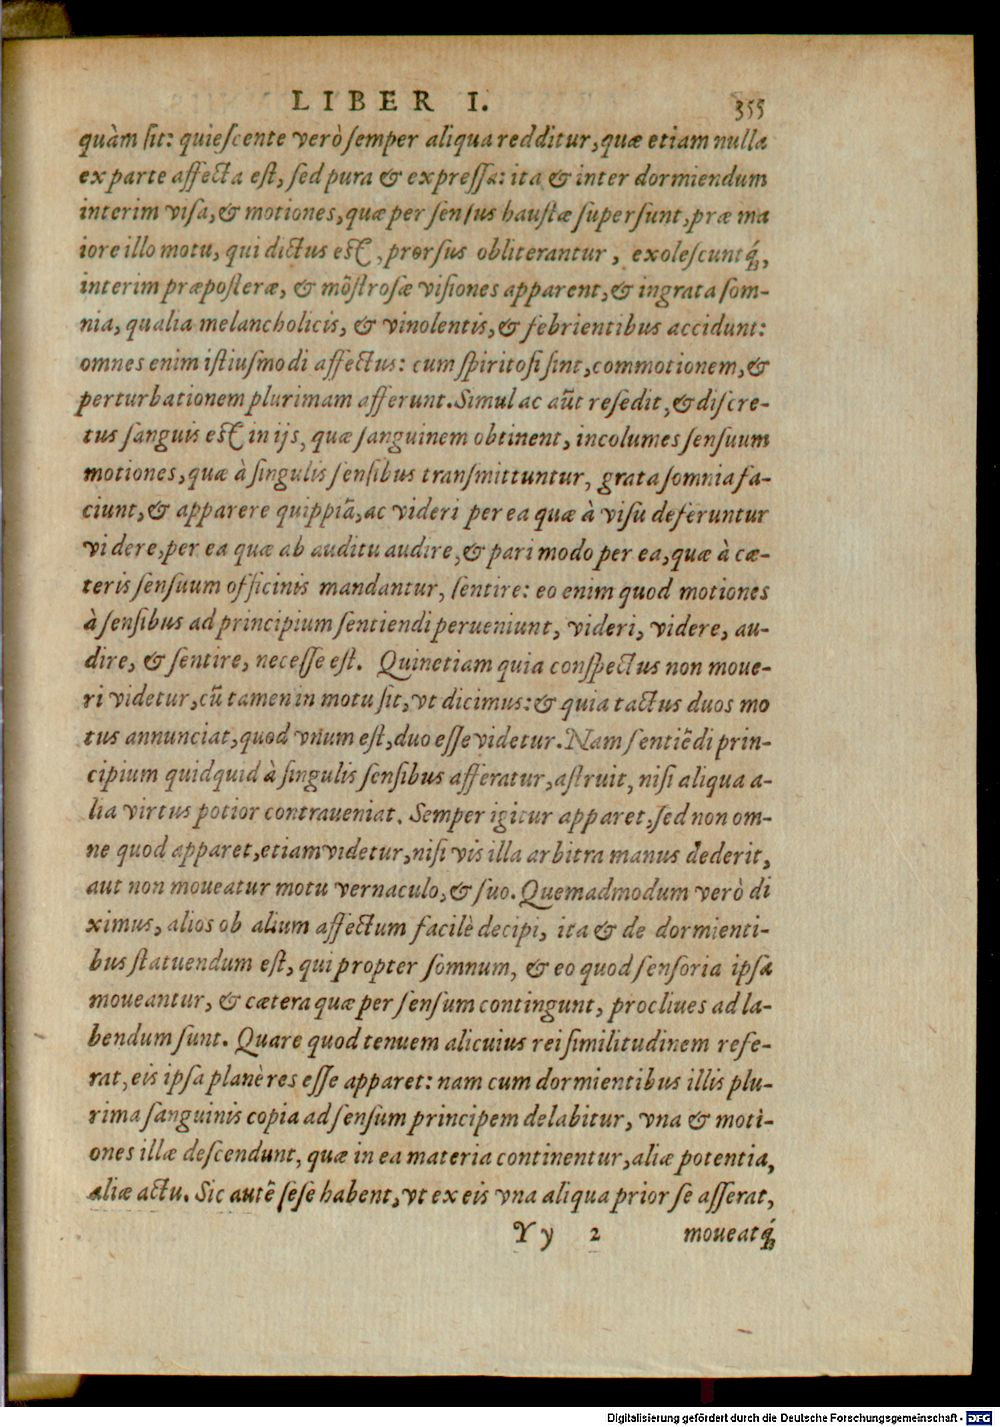 LIBER I. 355
quàm sit: quiescente verò semper aliqua redditur, quæ etiam nulla
ex parte affecta est, sed pura & expressa: ita & inter dormiendum
interim visa, & motiones, quæ per sensus haustæ supersunt, præ ma
iore illo motu, qui dictus est, prorsus obliterantur, exolescuntq́;,
interim præposteræ, & mõstrosæ visiones apparent, & ingrata som-
nia, qualia melancholicis, & vinolentis, & febrientibus accidunt:
omnes enim istiusmodi affectus: cum spiritosi sint, commotionem, &
perturbationem plurimam afferunt. Simul ac aũt resedit, & discre-
tus sanguis est in ijs, quæ sanguinem obtinent, incolumes sensuum
motiones, quæ à singulis sensibus transmittuntur, grata somnia fa-
ciunt, & apparere quippiã, ac videri per ea quæ à visu deferuntur
videre, per ea quæ ab auditu audire, & pari modo per ea, quæ à cæ-
teris sensuum officinis mandantur, sentire: eo enim quod motiones
à sensibus ad principium sentiendi perueniunt, videri, videre, au-
dire, & sentire, necesse est. Quinetiam quia conspectus non moue-
ri videtur, cũ tamen in motu sit, vt dicimus: & quia tactus duos mo
tus annunciat, quod vnum est, duo esse videtur. Nam sentiẽdi prin-
cipium quidquid à singulis sensibus afferatur, astruit, nisi aliqua a-
lia virtus potior contraueniat. Semper igitur apparet, sed non om-
ne quod apparet, etiam videtur, nisi vis illa arbitra manus dederit,
aut non moueatur motu vernaculo, & suo. Quemadmodum verò di
ximus, alios ob alium affectum facilè decipi, ita & de dormienti-
bus statuendum est, qui propter somnum, & eo quod sensoria ipsa
moueantur, & cætera quæ per sensum contingunt, procliues ad la-
bendum sunt. Quare quod tenuem alicuius rei similitudinem refe-
rat, eis ipsa planè res esse apparet: nam cum dormientibus illis plu-
rima sanguinis copia ad sensum principem delabitur, vna & moti-
ones illæ descendunt, quæ in ea materia continentur, aliæ potentia,
aliæ actu. Sic autẽ sese habent, vt ex eis vna aliqua prior se asserat,
Yy 2 moueatq́;
Digitalisierung gefördert durch die Deutsche Forschungsgemeinschaft - DFG